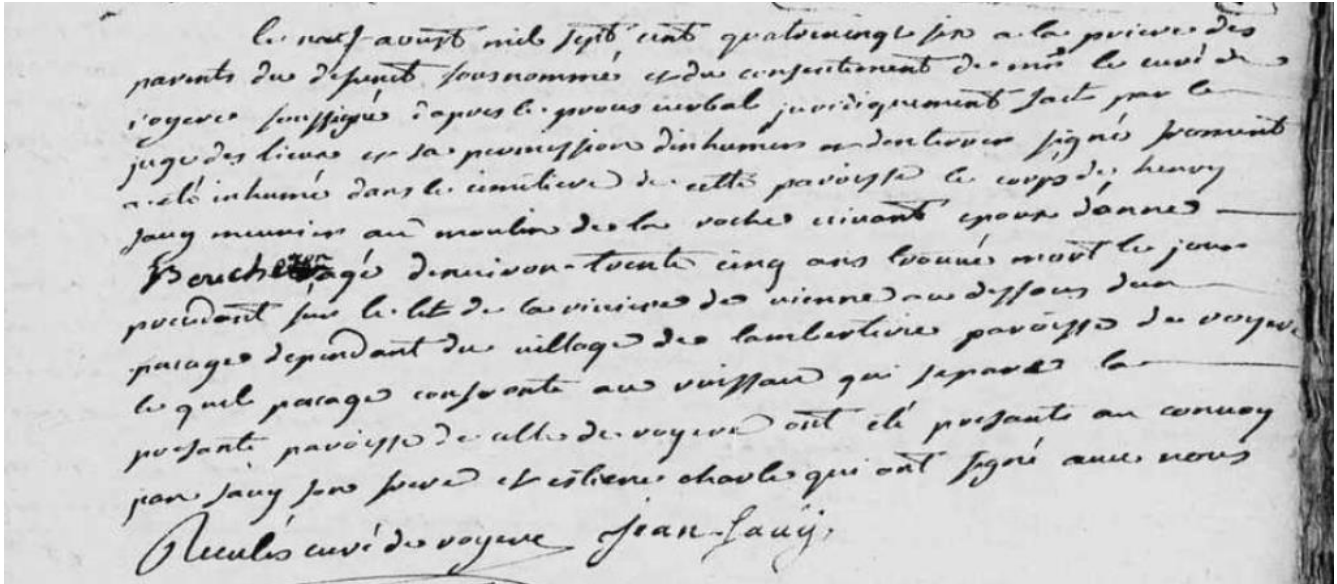 le neuf aoust mil sept cent quatrevingt six a la priere des
parents du defunt sousnommé et du consentement de mr le curé de
royere soussigné d'apres le procès verbal juridiquement fait par le
juge des lieux et sa permission d'inhumer signé froment
a été inhumé dans le cimetiere de cette paroisse le corps de henry
Jauy meunier au moulin de la roche vivant epoux d'anne
Bouchet agé d'environ trente cinq ans trouvé mort le jour
precedent sur le lit de la riviere de vienne au dessous d'un
pacage dependant du village de lambertine paroisse de royere
le quel pacage confronte au ruisseau qui separe la
presente paroisse de celle de royere ont été presents au convoy
jean jauy son frere et estiene charle qui ont signé avec nous
curé de royere Jean Jauÿ